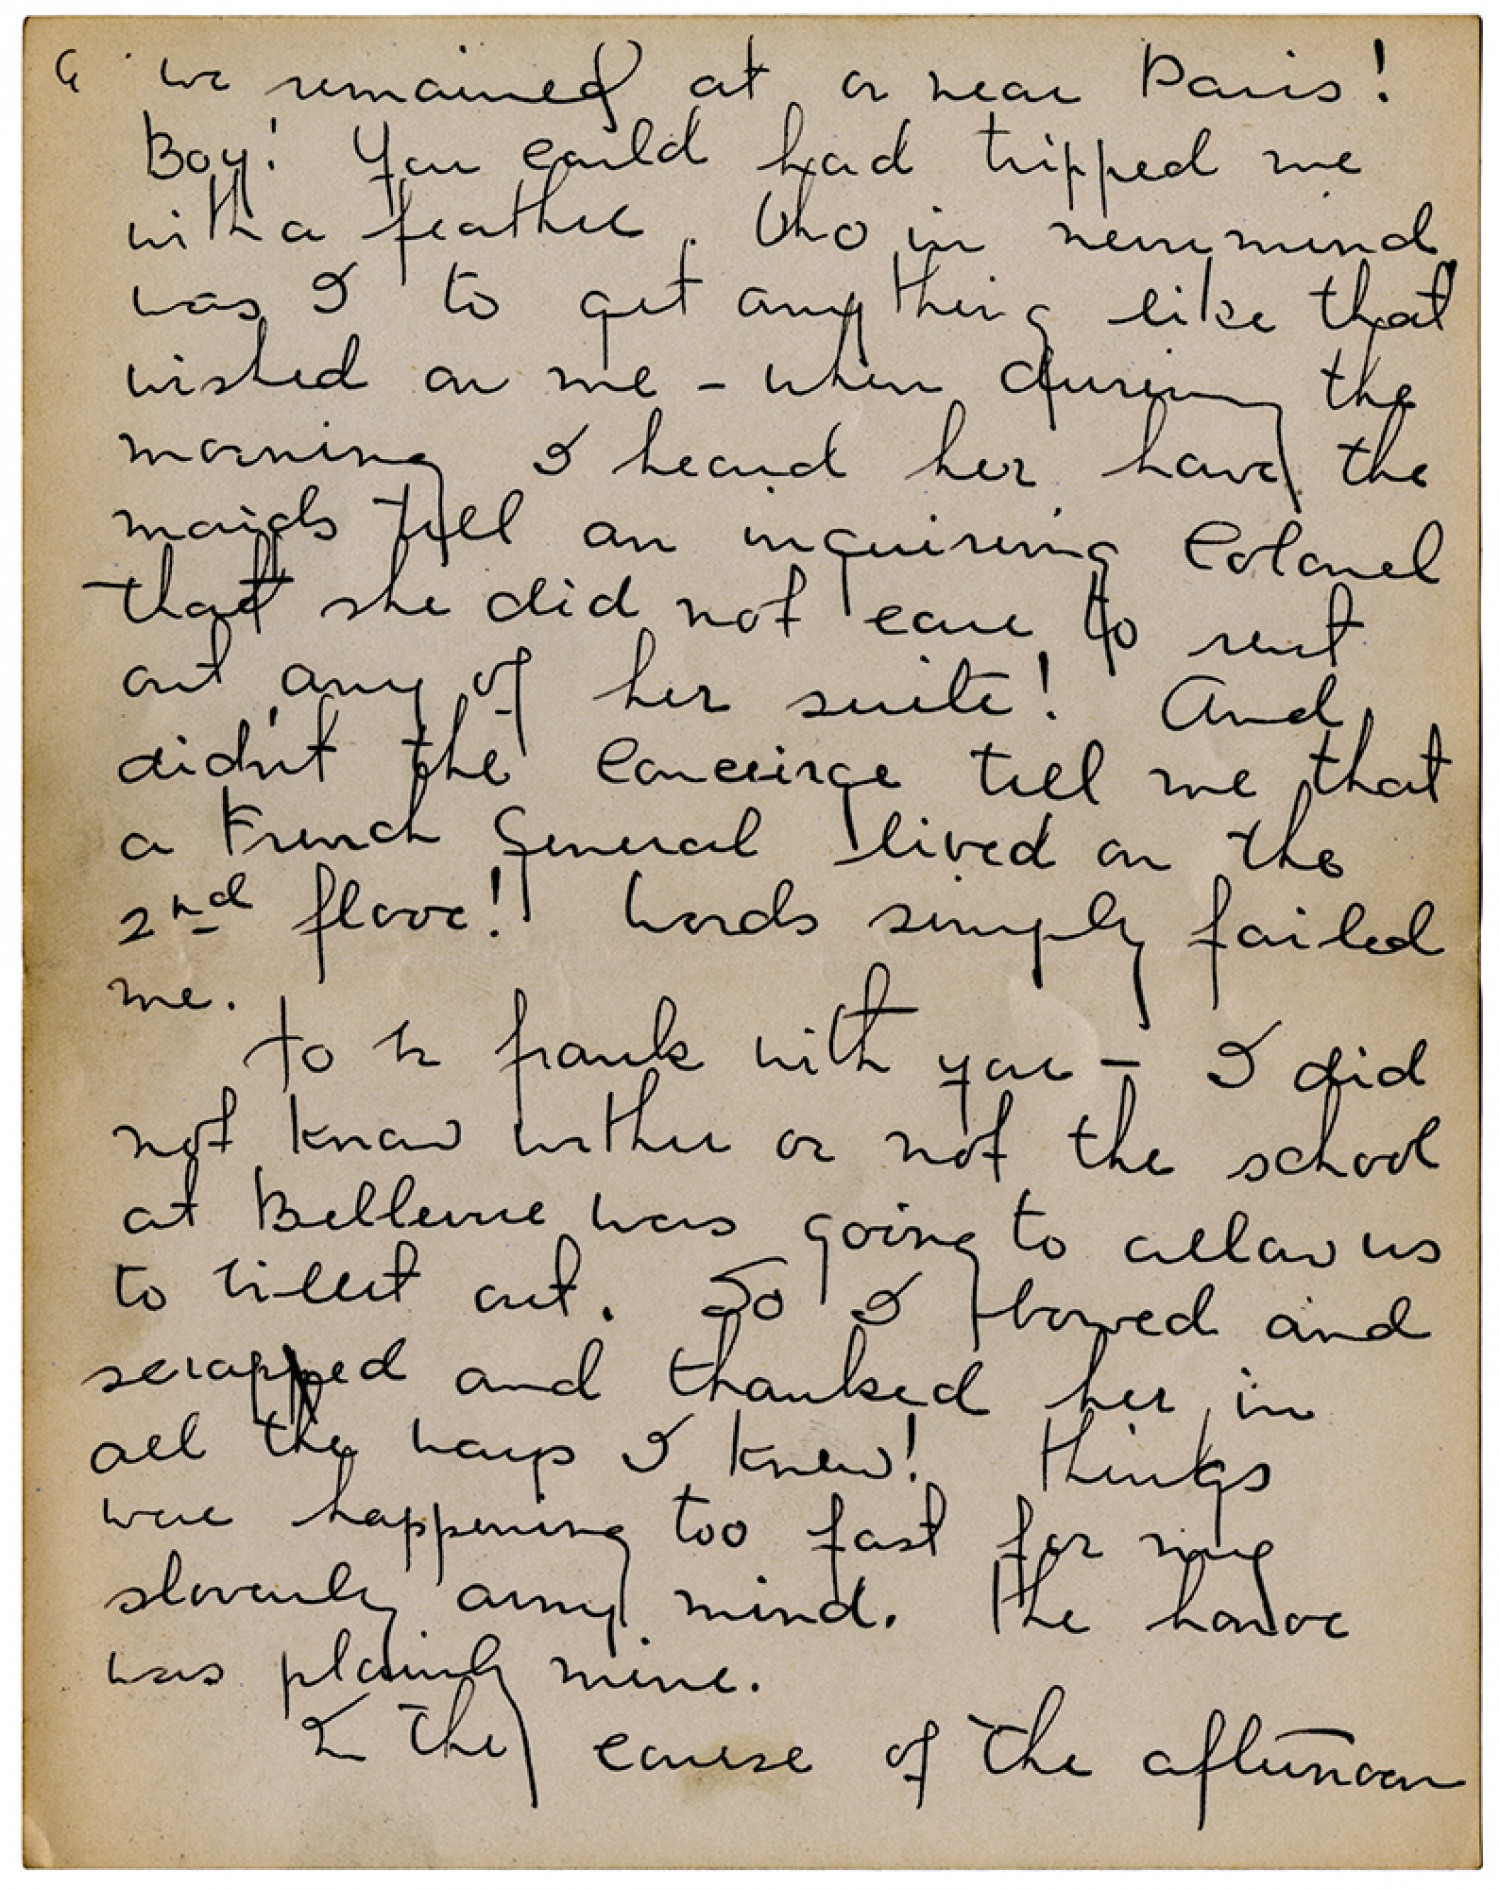 6 we remained at or near Paris!
Boy! You could had tripped me
with a feather. Who in
was I to get anything like that
wished on me – when during the
morning I heard her have the
maids tell an inquiring Colonel
that she did not care to rent
out any of her suite! And
didn't the Conceirge tell me that
a French General lived on the
2nd floor! Words simply failed
me.
To be frank with you – I did
not know wether or not the school
at Bellevue was going to allow us
to billet out. So I bowed and
scrapped and thanked her in
all the ways I knew! Things
were happening too fast for my
slovenly army mind. The honor
was plainly mine.
In the course of the afternoon